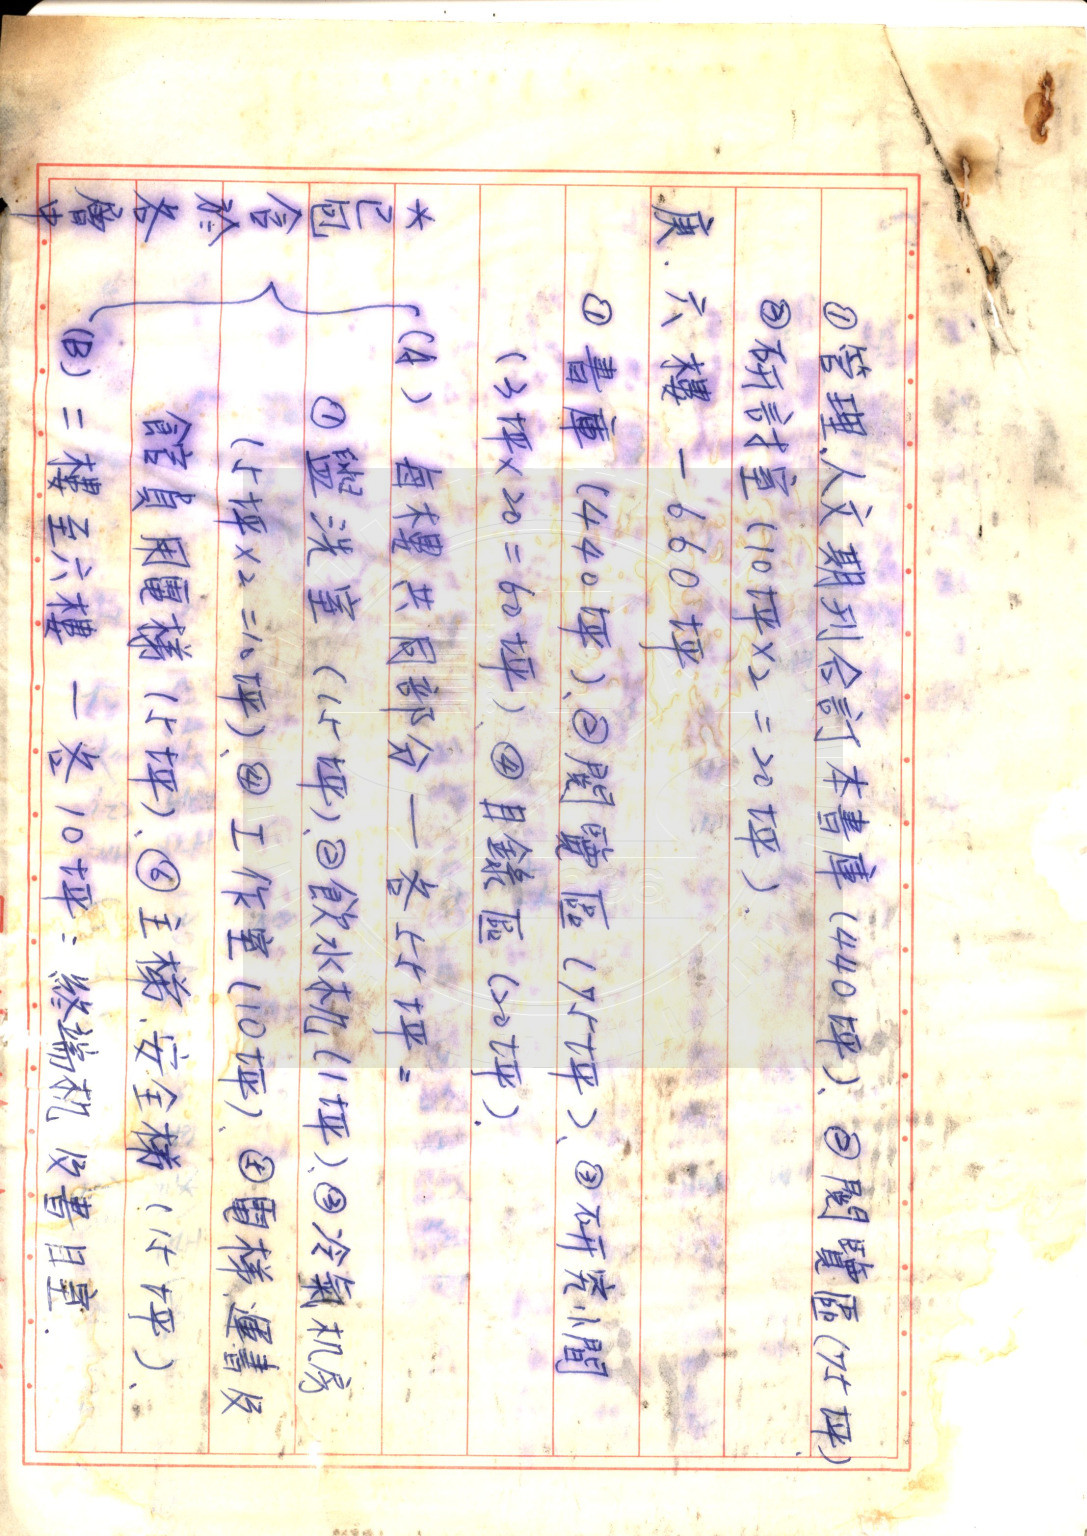 ①管理、人文期刊合訂本書庫(440坪)、②閱覽區(75坪)
③研討室(10坪×2=20坪).
庚. 六樓 —660坪
①書庫(440坪)、②閱覽區(75坪)、③研究小間
(3坪×20=60坪)、④目錄區(20坪).
*已包含於各層中
(A) 每樓共同部分—各65坪=
①盥洗室(15坪)、②飲水机(1坪)、③冷氣机房
(5坪×2=10坪)、④工作室(10坪)、⑤電梯、運書及
館員用電梯(5坪)、⑥主梯、安全梯(15坪)、
(B) 二樓至六樓 —各10坪:終端机及書目室.